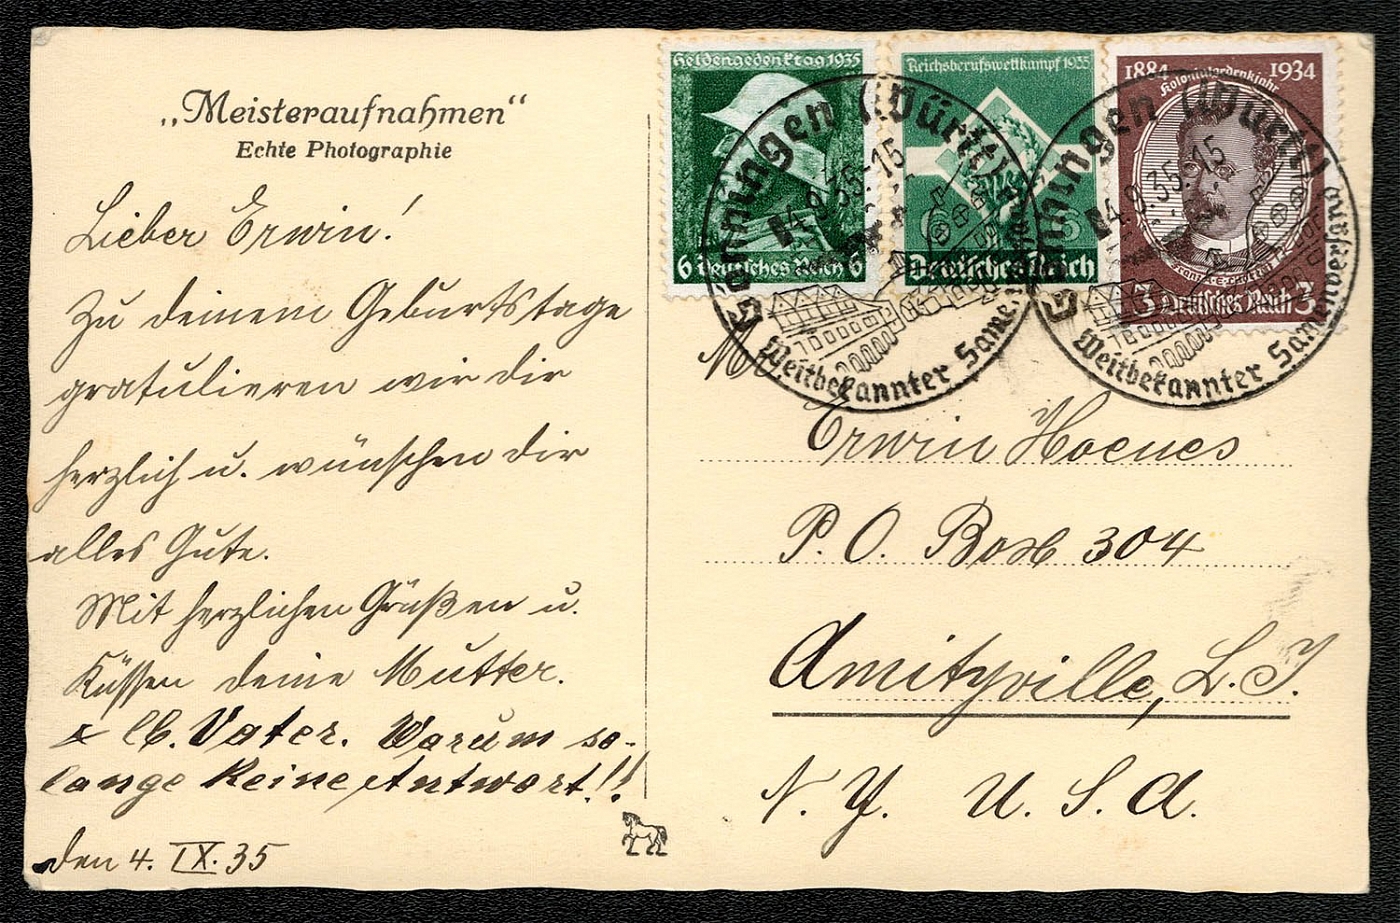 „Meisteraufnahmen“
Echte Photographie
Lieber Erwin!
Zu deinem Geburtstage
gratulieren wir dir
herzlich u. wünschen dir
alles Gute.
Mit herzlichen Grüßen u.
Küssen deine Mutter.
lb. Vater. Warum so-
lange keine Antwort!!
den 4. IX. 35
Heldengedenktag 1935
6 Deutsches Reich 6
Reichsberufswettkampf 1935
6 6
Deutsches Reich
1884 1934
3 Deutsches Reich 3
Gönningen (Württ)
4.9.35.-15
Weltbekannter
Gönningen (Württ)
4.9.35.-15
Weltbekannter Samenversand
Erwin Hoenes
P. O. Box 304
Amityville, L. I.
N. Y. U. S. A.